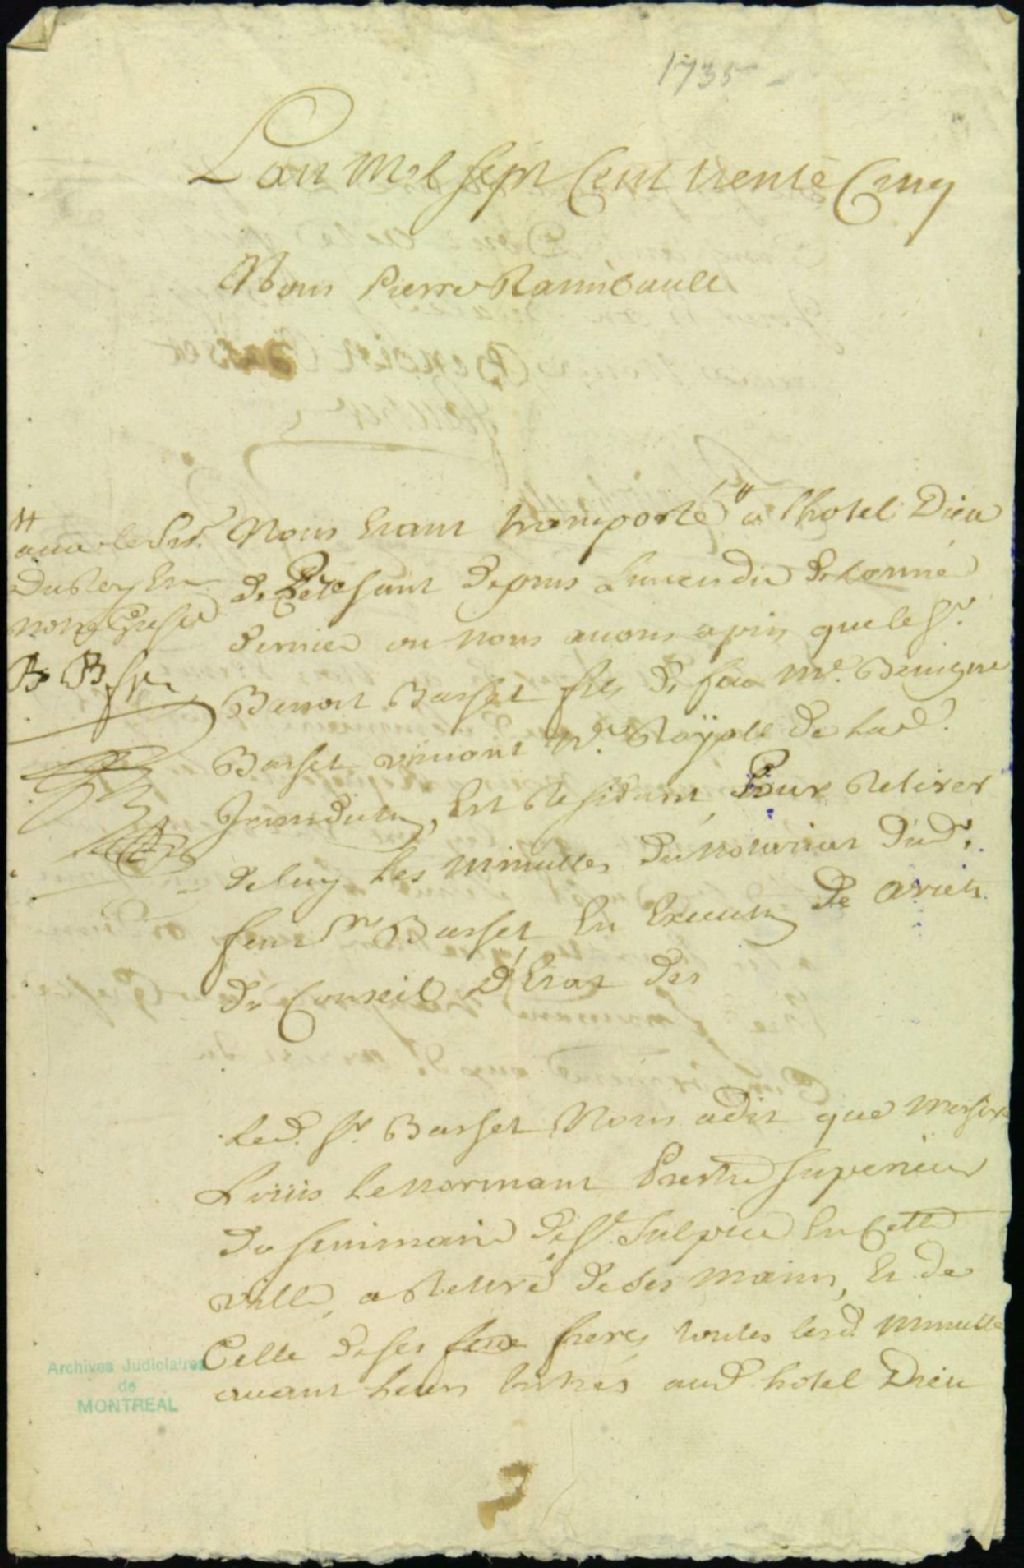 1735
L'an Mil sept Cent trente Cinq
Nous Pierre Raimbault
Nous Etant transporté # a l'hotel Dieu
# avec le Sr.
Dubreÿ En
notre Greffe
B B
de Cet depuis L'incendie de L'année
derniere ou Nous avons apris que le Sr.
Benoit Basset fils de feu Me. Benigne
Basset vivant Nre. Royalle de lad.
Jurisdiction, Est Residant, Pour Retirer
de luy Les Minuttes du Nottariat dud.
feu Sr Basset En Execution de arrest
du Conseil d'Etat des
Led. Sr. Basset Nous a dit que Messire
Louis Le normant Prestre Superieur
du Seminaire de St. Sulpice En Cette
ville, a Retiré de ses mains, Et de
Celle de ses freres toutes lesd. Minutte
avant leurs Entrés aud. hotel Dieu
Archives Judiciaires
de
MONTREAL